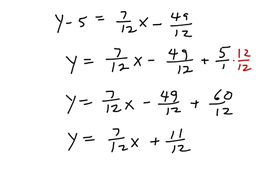 y - 5 = 7/12 x - 49/12
y = 7/12 x - 49/12 + 5/1 · 12/12
y = 7/12 x - 49/12 + 60/12
y = 7/12 x + 11/12